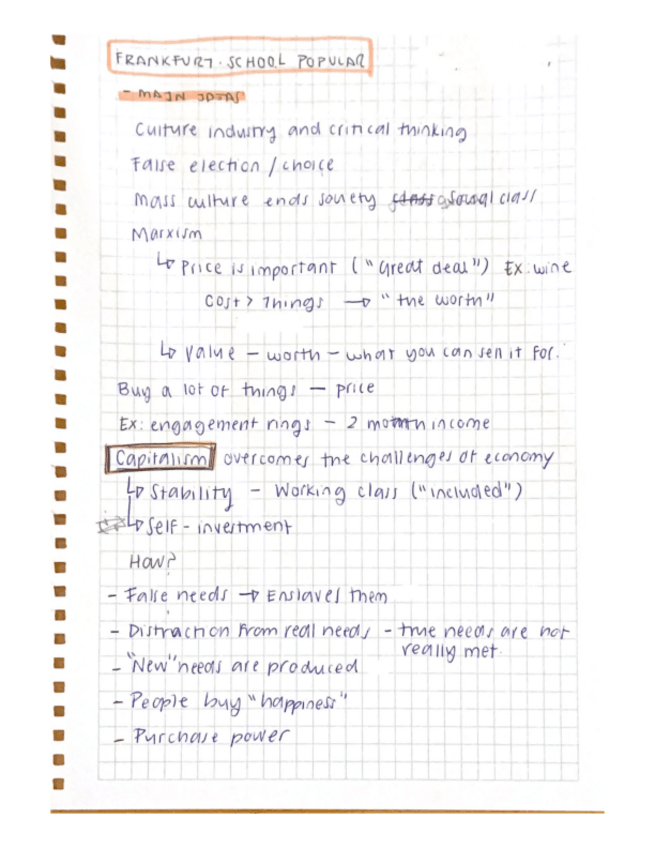 FRANKFURT SCHOOL POPULAR
- MAIN IDEAS
Culture industry and critical thinking
False election / choice
Mass culture ends society class social class
Marxism
↳ Price is important ("Great deal") Ex: wine
Cost > Things → "the worth"
↳ Value - worth - what you can sell it for.
Buy a lot of things - price
Ex: engagement rings - 2 month income
Capitalism overcomes the challenges of economy
↳ Stability - Working class ("included")
↳ Self - investment
How?
- False needs → Enslaves them
- Distraction From real needs - true needs are not
really met
- "New" needs are produced
- People buy "happiness"
- Purchase power